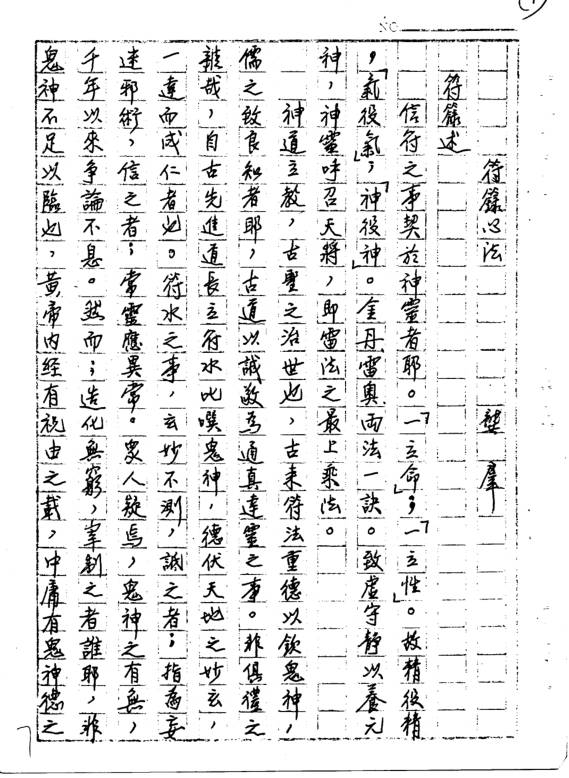 NO.
符籙心法 龔羣
符籙述
信符之事契於神靈者耶。「一立命」;「一立性」。故精役精
,「氣役氣」;「神役神」。金丹雷奧兩法一訣。致虛守靜以養元
神,神靈呼召天將,即雷法之最上乘法。
神道立教,古聖之治世也,古來符法重德以欽鬼神,
儒之致良知者耶,古道以誠敬為通真達靈之事。非俱禮之
難哉,自古先進道長立符水叱噀鬼神,德伏天地之妙玄,
一達而成仁者也。符水之事,玄妙不測,詆之者;指為妄
迷邪術,信之者;常靈應異常。眾人疑焉,鬼神之有無,
千年以來爭論不息。然而;造化無窮,宰制之者誰耶,非
鬼神不足以臨也,黃帝內經有祝由之載,中庸有鬼神德之